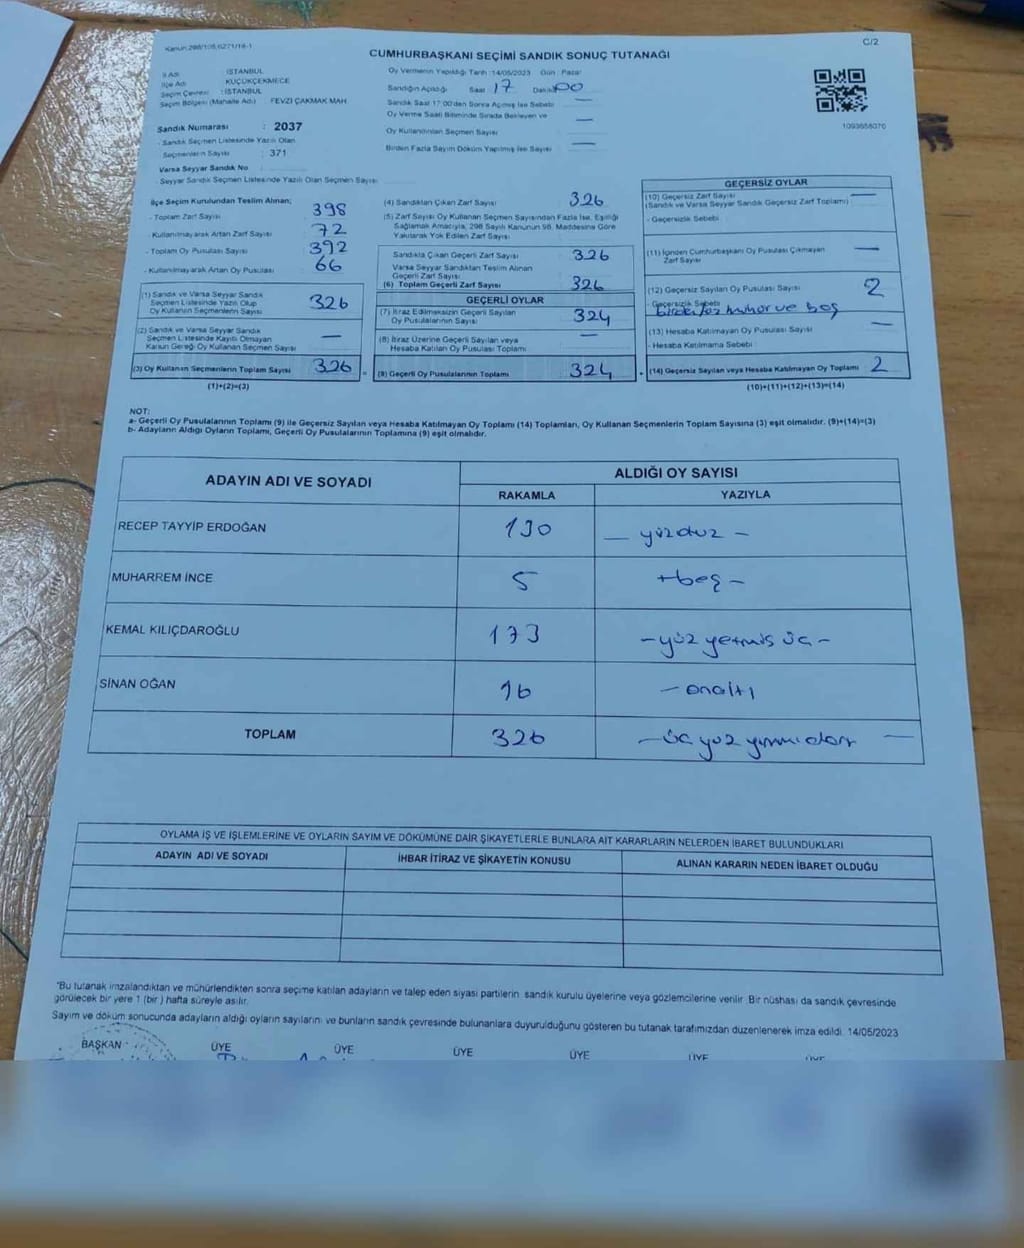 Kanun:298/105,6271/18-1
C/2
CUMHURBAŞKANI SEÇİMİ SANDIK SONUÇ TUTANAĞI
İl Adı : İSTANBUL
İlçe Adı : KÜÇÜKÇEKMECE
Seçim Çevresi : İSTANBUL
Seçim Bölgesi (Mahalle Adı) : FEVZİ ÇAKMAK MAH.
Sandık Numarası : 2037
- Sandık Seçmen Listesinde Yazılı Olan
Seçmenlerin Sayısı : 371
Varsa Seyyar Sandık No
- Seyyar Sandık Seçmen Listesinde Yazılı Olan Seçmen Sayısı
Oy Vermenin Yapıldığı Tarih :14/05/2023 Gün : Pazar
Sandığın Açıldığı Saat : 17 Dakika 00
Sandık Saat 17:00'den Sonra Açılmış İse Sebebi —
Oy Verme Saati Bitiminde Sırada Bekleyen ve —
Oy Kullandırılan Seçmen Sayısı
Birden Fazla Sayım Döküm Yapılmış İse Sayısı —
1093688070
İlçe Seçim Kurulundan Teslim Alınan;
- Toplam Zarf Sayısı 398
- Kullanılmayarak Artan Zarf Sayısı 72
- Toplam Oy Pusulası Sayısı 392
- Kullanılmayarak Artan Oy Pusulası 66
(1) Sandık ve Varsa Seyyar Sandık
Seçmen Listesinde Yazılı Olup
Oy Kullanan Seçmenlerin Sayısı 326
(2) Sandık ve Varsa Seyyar Sandık
Seçmen Listesinde Kayıtlı Olmayan
Kanun Gereği Oy Kullanan Seçmen Sayısı —
(3) Oy Kullanan Seçmenlerin Toplam Sayısı 326
(1)+(2)=(3)
(4) Sandıktan Çıkan Zarf Sayısı 326
(5) Zarf Sayısı Oy Kullanan Seçmen Sayısından Fazla İse, Eşitliği
Sağlamak Amacıyla, 298 Sayılı Kanunun 98. Maddesine Göre
Yakılarak Yok Edilen Zarf Sayısı
Sandıkta Çıkan Geçerli Zarf Sayısı 326
Varsa Seyyar Sandıktan Teslim Alınan
Geçerli Zarf Sayısı
(6) Toplam Geçerli Zarf Sayısı 326
GEÇERLİ OYLAR
(7) İtiraz Edilmeksizin Geçerli Sayılan
Oy Pusulalarının Sayısı 324
(8) İtiraz Üzerine Geçerli Sayılan veya
Hesaba Katılan Oy Pusulası Toplamı —
(9) Geçerli Oy Pusulalarının Toplamı 324
GEÇERSİZ OYLAR
(10) Geçersiz Zarf Sayısı —
(Sandık ve Varsa Seyyar Sandık Geçersiz Zarf Toplamı)
- Geçersizlik Sebebi
(11) İçinden Cumhurbaşkanı Oy Pusulası Çıkmayan —
Zarf Sayısı
(12) Geçersiz Sayılan Oy Pusulası Sayısı 2
- Geçersizlik Sebebi
birden faz mühür ve boş
(13) Hesaba Katılmayan Oy Pusulası Sayısı —
- Hesaba Katılmama Sebebi
(14) Geçersiz Sayılan veya Hesaba Katılmayan Oy Toplamı 2
(10)+(11)+(12)+(13)=(14)
NOT:
a- Geçerli Oy Pusulalarının Toplamı (9) ile Geçersiz Sayılan veya Hesaba Katılmayan Oy Toplamı (14) Toplamları, Oy Kullanan Seçmenlerin Toplam Sayısına (3) eşit olmalıdır. (9)+(14)=(3)
b- Adayların Aldığı Oyların Toplamı, Geçerli Oy Pusulalarının Toplamına (9) eşit olmalıdır.
ADAYIN ADI VE SOYADI
ALDIĞI OY SAYISI
RAKAMLA YAZIYLA
RECEP TAYYİP ERDOĞAN 130 — yüzotuz —
MUHARREM İNCE 5 — beş —
KEMAL KILIÇDAROĞLU 173 — yüz yetmiş üç —
SİNAN OĞAN 16 — onaltı
TOPLAM 326 — üç yüz yirmi dört —
OYLAMA İŞ VE İŞLEMLERİNE VE OYLARIN SAYIM VE DÖKÜMÜNE DAİR ŞİKAYETLERLE BUNLARA AİT KARARLARIN NELERDEN İBARET BULUNDUKLARI
ADAYIN ADI VE SOYADI İHBAR İTİRAZ VE ŞİKAYETİN KONUSU ALINAN KARARIN NEDEN İBARET OLDUĞU
"Bu tutanak imzalandıktan ve mühürlendikten sonra seçime katılan adayların ve talep eden siyasi partilerin sandık kurulu üyelerine veya gözlemcilerine verilir. Bir nüshası da sandık çevresinde
görülecek bir yere 1 (bir ) hafta süreyle asılır.
Sayım ve döküm sonucunda adayların aldığı oyların sayılarını ve bunların sandık çevresinde bulunanlara duyurulduğunu gösteren bu tutanak tarafımızdan düzenlenerek imza edildi. 14/05/2023
BAŞKAN ÜYE ÜYE ÜYE ÜYE ÜYE ÜYE